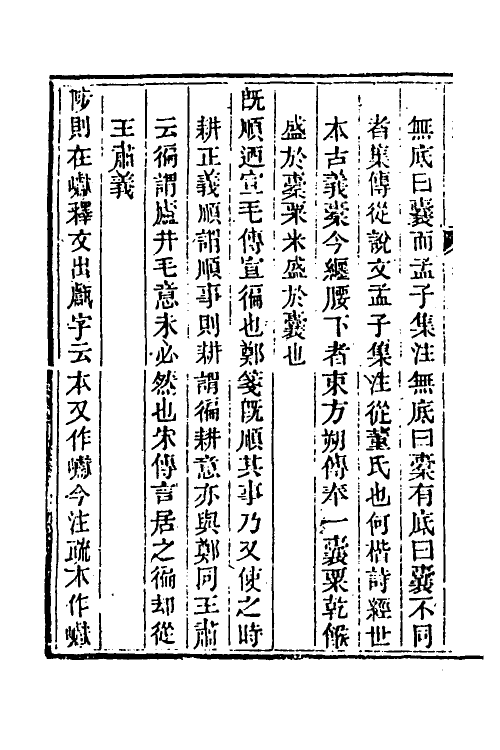 無底曰囊而孟子集注無底曰橐有底曰囊不同
者集傳從說文孟子集注從董氏也何楷詩經世
本古義橐今纏腰下者東方朔傳奉一囊粟乾餱
盛於橐粟米盛於囊也
既順迺宣毛傳宣徧也鄭箋既順其事乃又使之時
耕正義順謂順事則耕謂徧耕意亦與鄭同王肅
云徧謂廬井毛意未必然也朱傳言居之徧却從
王肅義
陟則在巘釋文出甗字云本又作巘今注疏本作巘